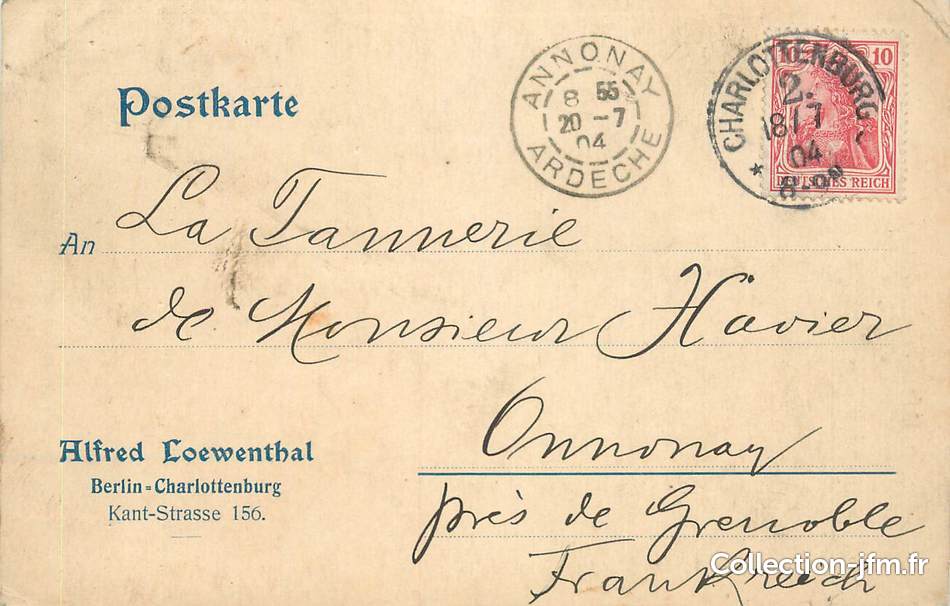 Postkarte
ANNONAY
8 55
20 - 7
04
ARDECHE
CHARLOTTENBURG
2.
18 / 7
04
8-9N
10 10
DEUTSCHES REICH
An La Tannerie
de Monsieur Havier
Onnonay
près de Grenoble
Frankreich
Alfred Loewenthal
Berlin=Charlottenburg
Kant-Strasse 156.
Collection-jfm.fr